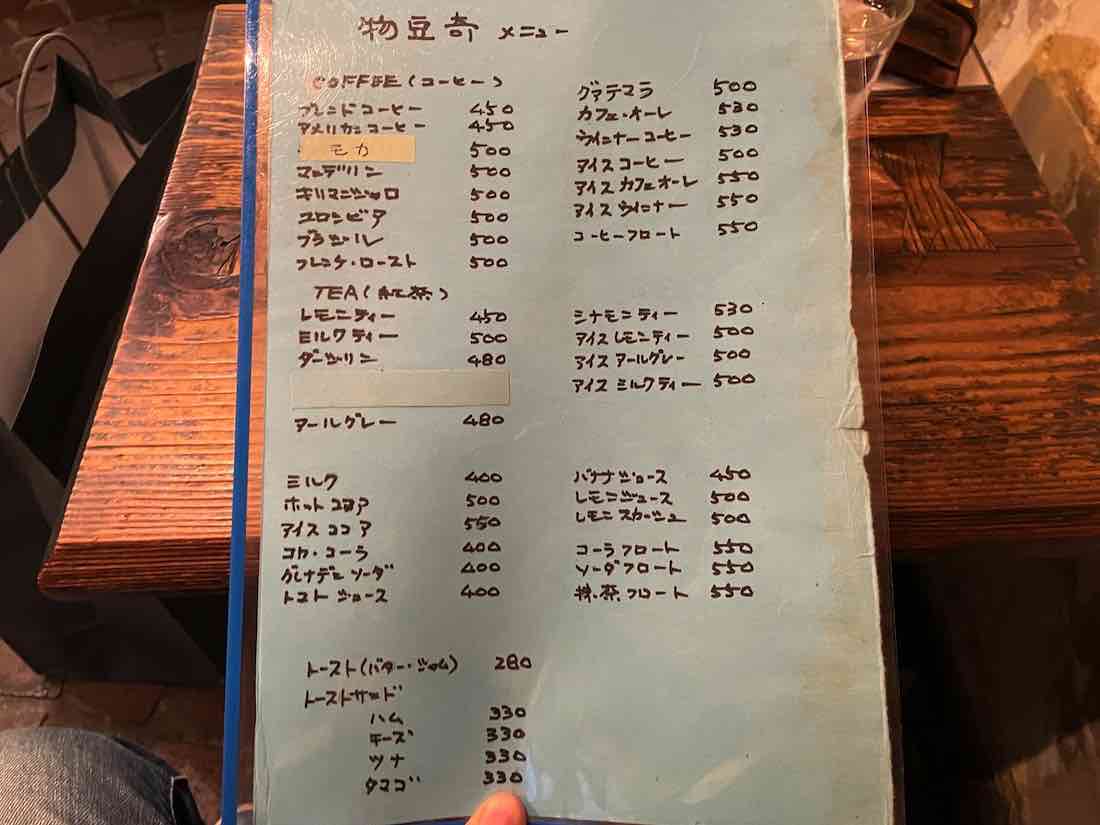 物豆奇 メニュー
COFFEE(コーヒー)
ブレンドコーヒー 450
アメリカンコーヒー 450
モカ 500
マンデリン 500
キリマンジャロ 500
コロンビア 500
ブラジル 500
フレンチ・ロースト 500
グァテマラ 500
カフェ・オーレ 530
ウインナーコーヒー 530
アイスコーヒー 500
アイスカフェオーレ 550
アイスウインナー 550
コーヒーフロート 550
TEA(紅茶)
レモンティー 450
ミルクティー 500
ダージリン 480
アールグレー 480
シナモンティー 530
アイスレモンティー 500
アイスアールグレー 500
アイスミルクティー 500
ミルク 400
ホットココア 500
アイスココア 550
コカ・コーラ 400
グレナデンソーダ 400
トマトジュース 400
バナナジュース 450
レモンジュース 500
レモンスカッシュ 500
コーラフロート 550
ソーダフロート 550
抹茶フロート 550
トースト(バター・ジャム) 280
トーストサンド
ハム 330
チーズ 330
ツナ 330
タマゴ 330